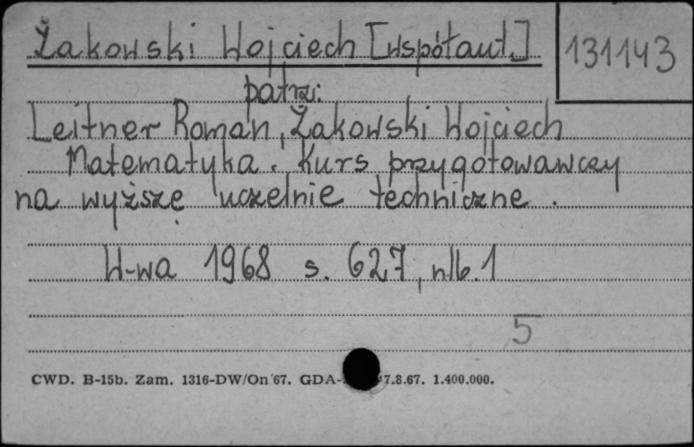 Żakowski Wojciech [współaut.]
131143
patrz:
Leitner Roman, Żakowski Wojciech
Matematyka. Kurs przygotowawczy
na wyższe uczelnie techniczne.
W-wa 1968 s. 627, nlb. 1
5
CWD. B-15b. Zam. 1316-DW/On 67. GDA- 7.8.67. 1.400.000.